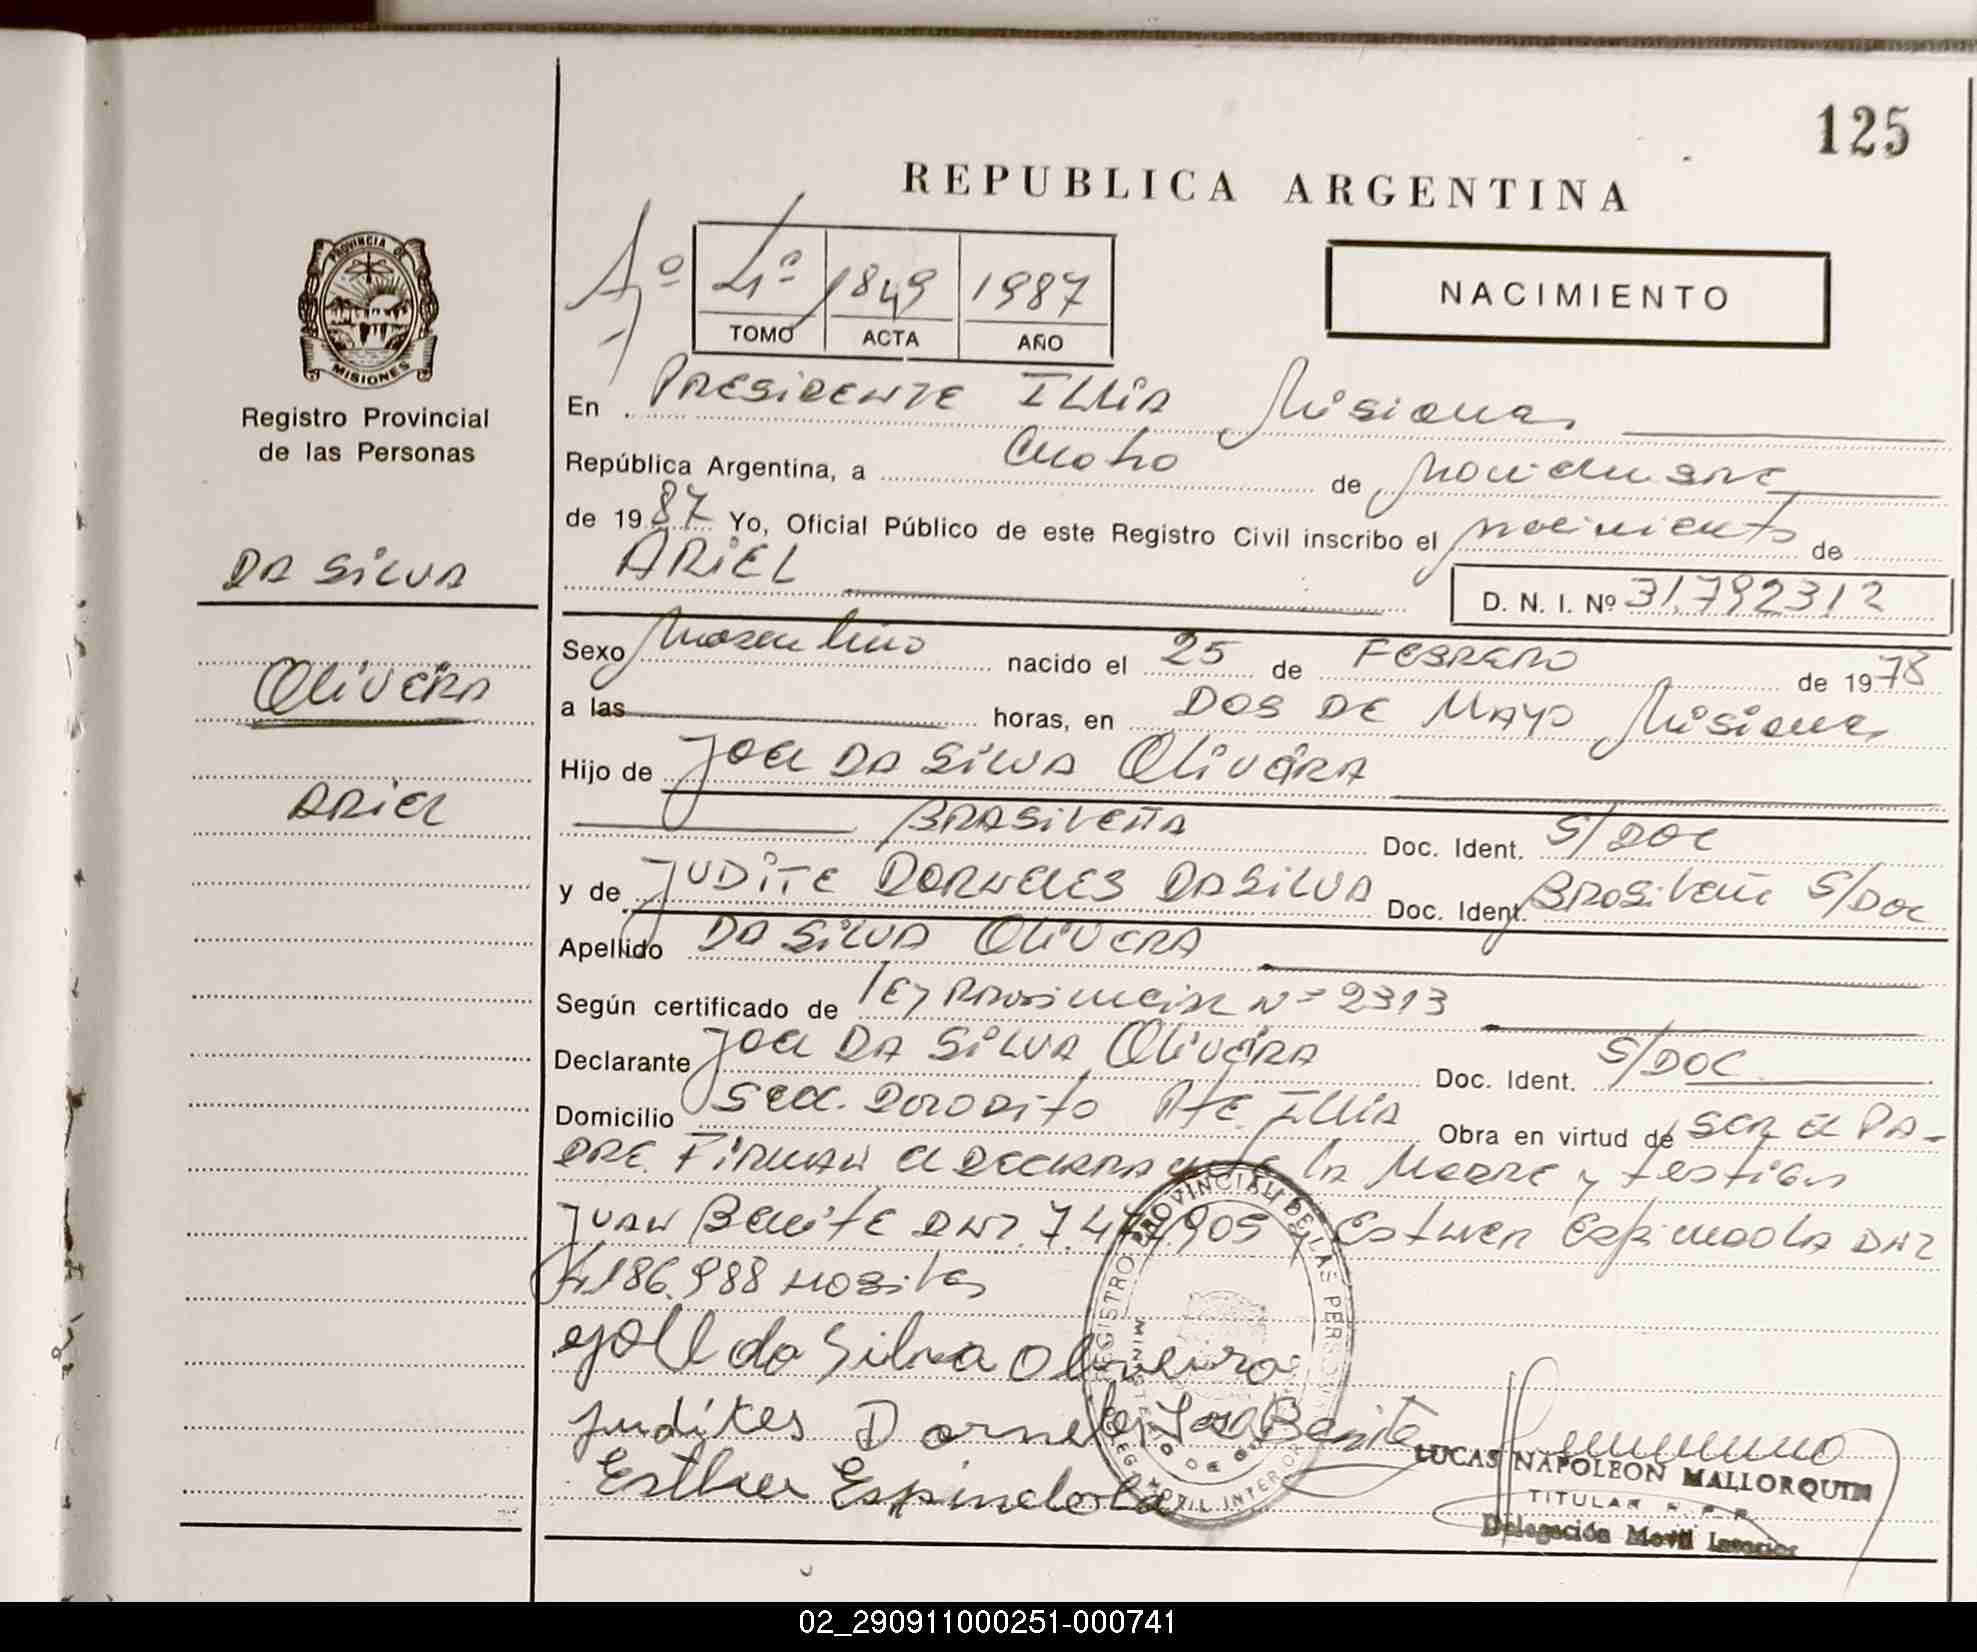 125
REPUBLICA ARGENTINA
4º 1849 1987
TOMO ACTA AÑO
NACIMIENTO
PROVINCIA DE MISIONES
Registro Provincial
de las Personas
DA SILVA
OLIVERA
ARIEL
En PRESIDENTE ILLIA Misiones
República Argentina, a cuatro de noviembre
de 1987 Yo, Oficial Público de este Registro Civil inscribo el nacimiento de
ARIEL
D. N. I. Nº 31.792312
Sexo masculino nacido el 25 de FEBRERO de 1978
a las horas, en DOS DE MAYO Misiones
Hijo de JOEL DA SILVA OLIVERA
BRASILEÑA Doc. Ident. S/DOC
y de JUDITE DORNELES DA SILVA Doc. Ident. BRASILEÑA S/DOC
Apellido DA SILVA OLIVERA
Según certificado de LEY PROVINCIAL Nº 2313
Declarante JOEL DA SILVA OLIVERA Doc. Ident. S/DOC
Domicilio SECC. DORADITO Pte. ILLIA Obra en virtud de SER EL PA-
DRE. FIRMAN EL DECLARANTE LA MADRE y testigos
JUAN BENITE DNI. 7.472905 y ESTHER ESPINDOLA DNI
4.186.988 HABILES
Joel da Silva Oliveira
Judites Dorneles Juan Benite
Esther Espindola
REGISTRO PROVINCIAL DE LAS PERSONAS
LUCAS NAPOLEON MALLORQUIN
TITULAR R. P. P.
Delegación Movil Interior
02_290911000251-000741